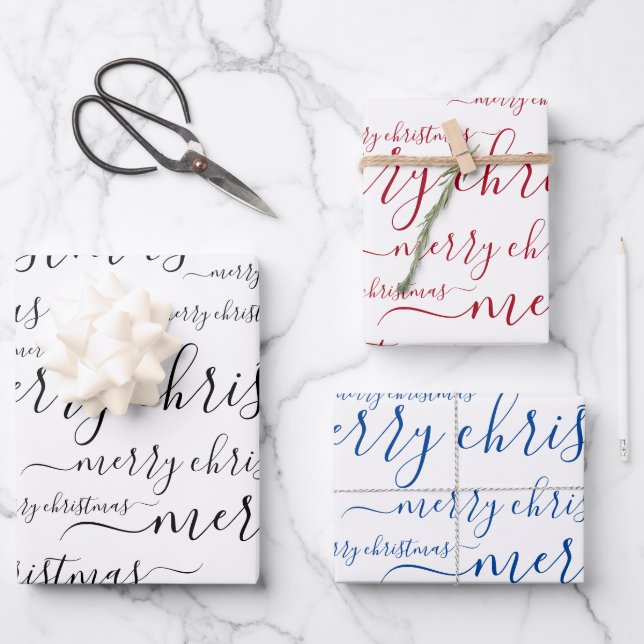 merry
merry christmas
mer
erry chris
merry chris
ry christmas
mer
hristmas
merry christmas
ry christmas
rry chris
merry chris
christmas
mer
y christmas
erry chris
merry chris
rry christmas
mer